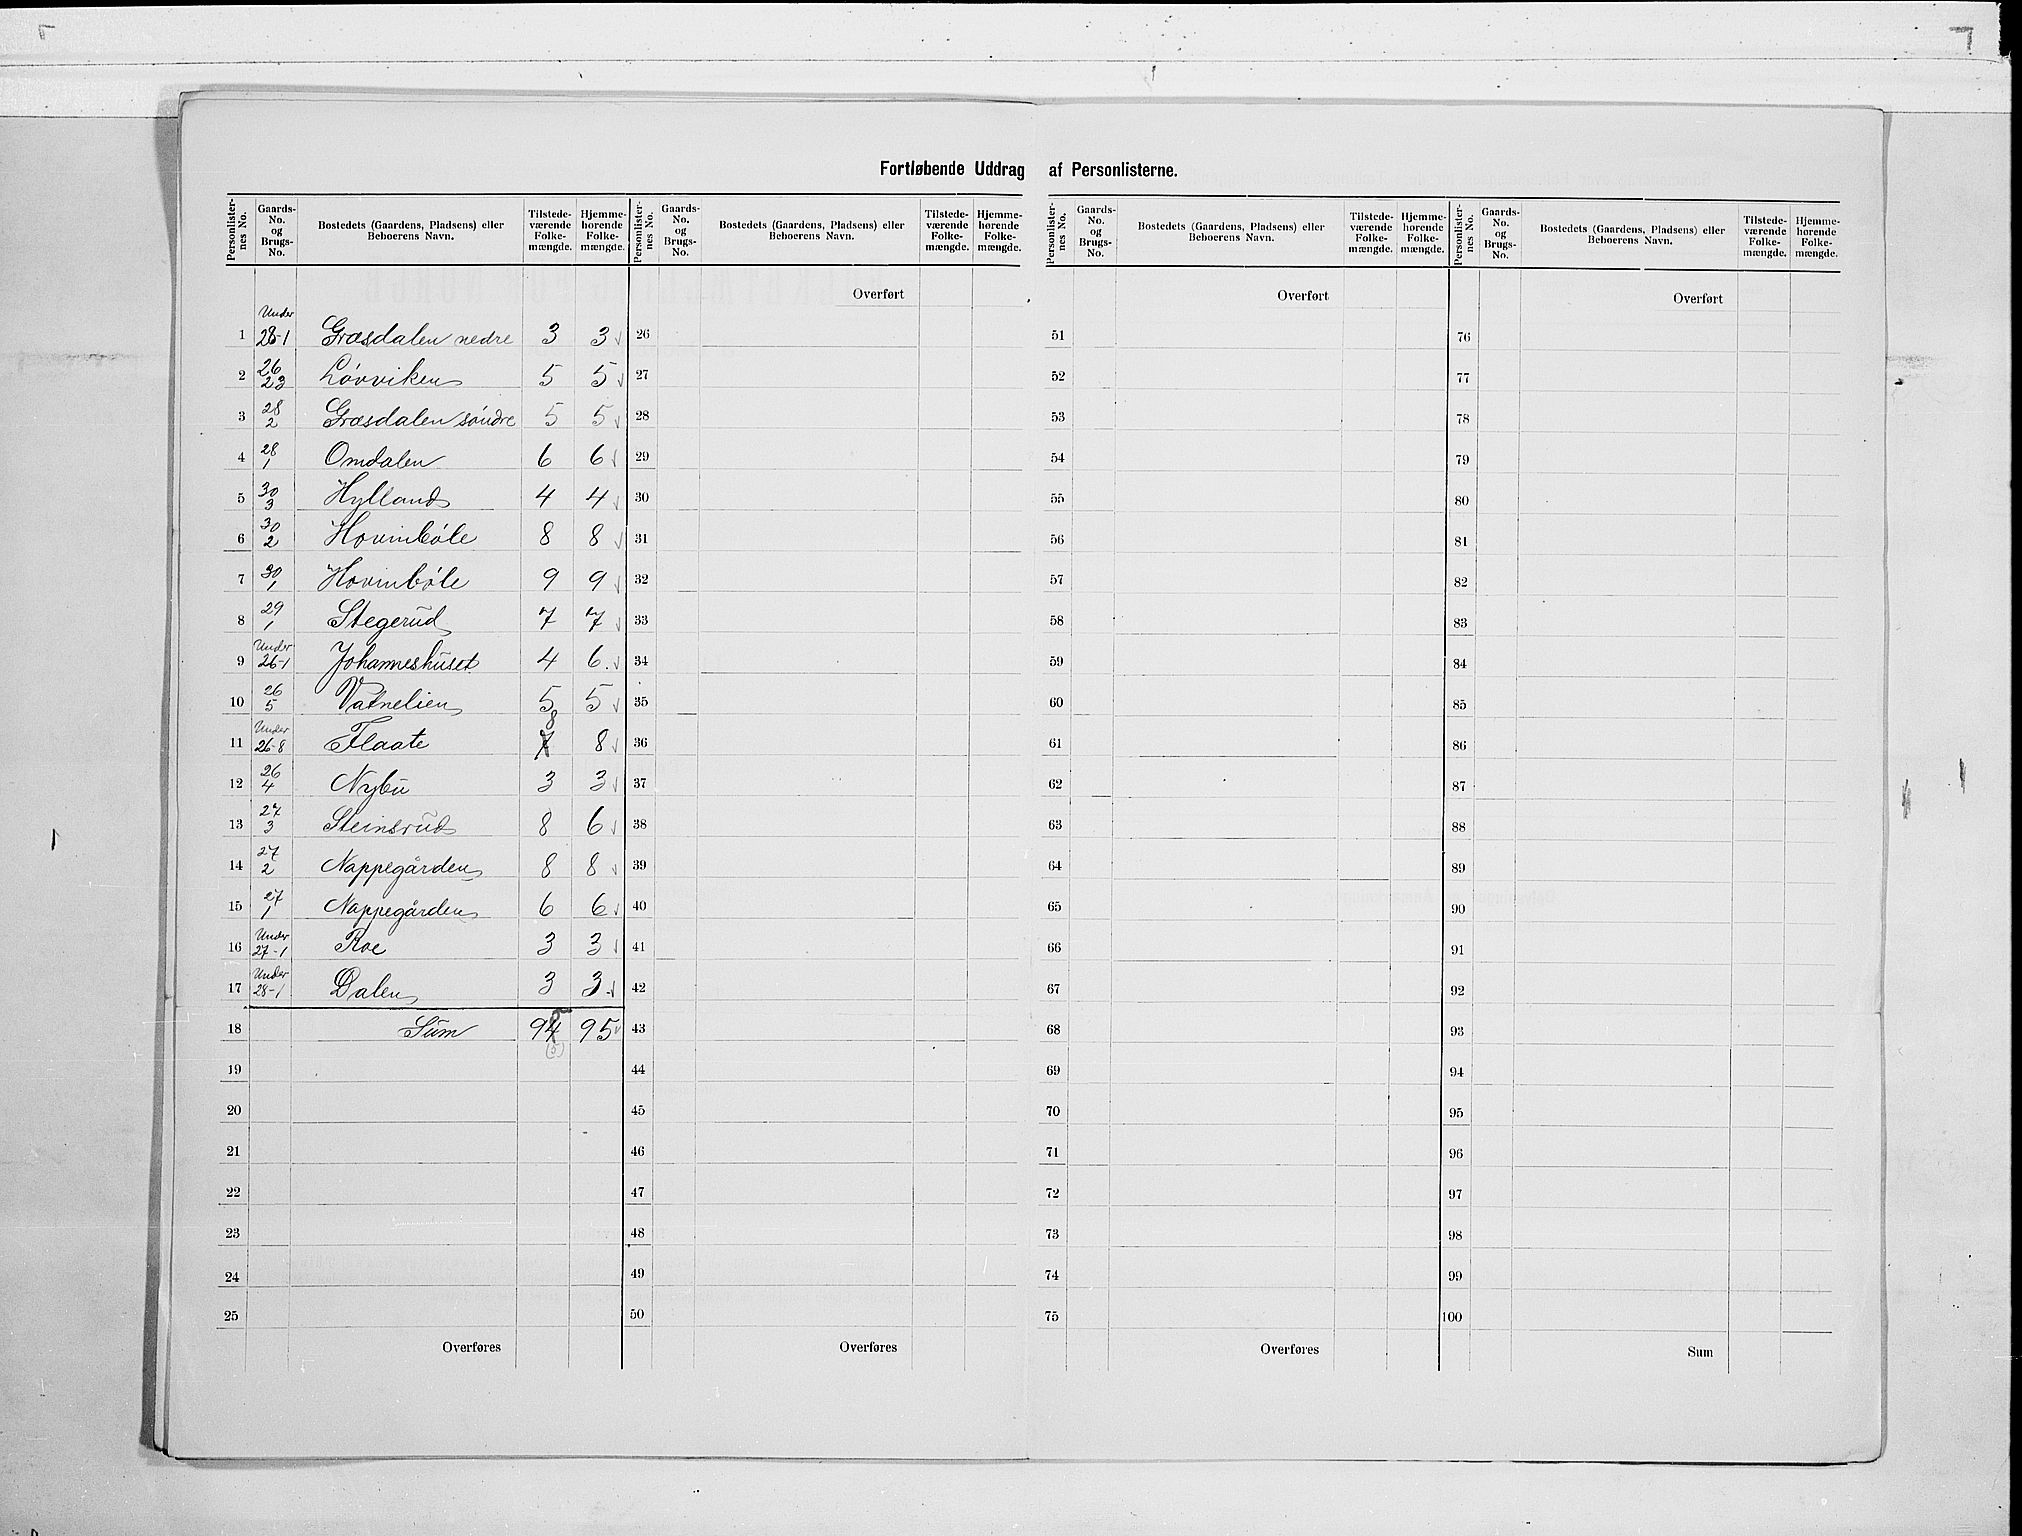 Fortløbende Uddrag af Personlisterne.
Personlisternes No. | Gaards-No. og Brugs-No. | Bostedets (Gaardens, Pladsens) eller Beboerens Navn. | Tilstedeværende Folkemængde. | Hjemmehørende Folkemængde. | Personlisternes No. | Gaards-No. og Brugs-No. | Bostedets (Gaardens, Pladsens) eller Beboerens Navn. | Tilstedeværende Folkemængde. | Hjemmehørende Folkemængde. | Personlisternes No. | Gaards-No. og Brugs-No. | Bostedets (Gaardens, Pladsens) eller Beboerens Navn. | Tilstedeværende Folkemængde. | Hjemmehørende Folkemængde. | Personlisternes No. | Gaards-No. og Brugs-No. | Bostedets (Gaardens, Pladsens) eller Beboerens Navn. | Tilstedeværende Folkemængde. | Hjemmehørende Folkemængde.
Overført Overført Overført
1 Under 28-1 Græsdalen nedre 3 3 26 51 76
2 26 23 Lövviken 5 5 27 52 77
3 28 2 Græsdalen söndre 5 5 28 53 78
4 28 1 Omdalen 6 6 29 54 79
5 30 3 Hylland 4 4 30 55 80
6 30 2 Hovinböle 8 8 31 56 81
7 30 1 Hovinböle 9 9 32 57 82
8 29 1 Stegerud 7 7 33 58 83
9 Under 26-1 Johanneshuset 4 6 34 59 84
10 26 5 Vatnelien 5 5 35 60 85
11 Under 26-8 Flaate 7 8 8 36 61 86
12 26 4 Nybu 3 3 37 62 87
13 27 3 Steinsrud 8 6 38 63 88
14 27 2 Nappegården 8 8 39 64 89
15 27 1 Nappegården 6 6 40 65 90
16 Under 27-1 Roe 3 3 41 66 91
17 Under 28-1 Dalen 3 3 42 67 92
18 Sum 94 5 (5) 95 43 68 93
19 44 69 94
20 45 70 95
21 46 71 96
22 47 72 97
23 48 73 98
24 49 74 99
25 50 75 100
Overføres Overføres Overføres Sum